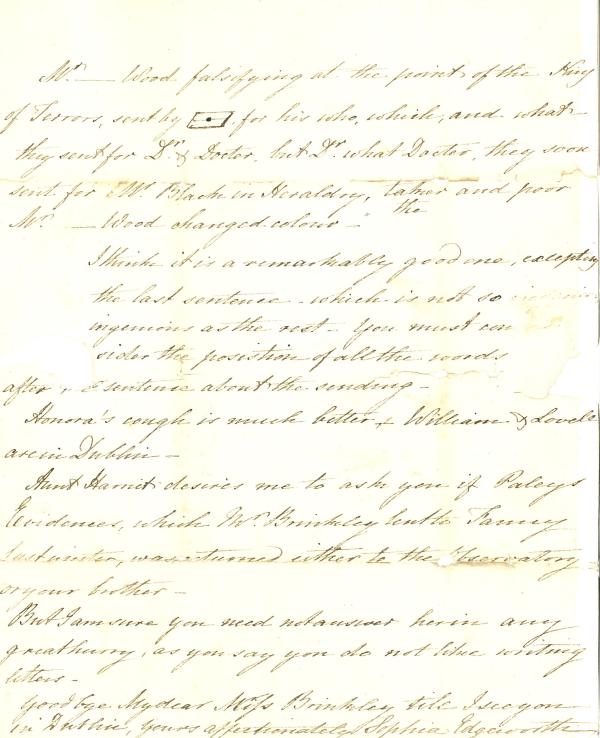 Mr — Wood falsifying at the point of the King
of Terrors, sent by for his who, which, and what —
they sent for Dr & Doctor, but Dr what Doctor, they soon
sent for Mr Black in Heraldry, taker and poor
Mr — Wood changed colour — " the
I think it is a remarkably good one, excepting
the last sentence - which is not so
ingenious as the rest — You must con
sider the posistion of all the words
after sentence about the sending —
Honora's cough is much better, & William & Lovell
are in Dublin —
Aunt Harriet desires me to ask you if Paleys
Evidences, which Mr Brinkley lent to Fanny
last winter, was returned either to the Observatory
or your brother —
But I am sure you need not answer her in any
great hurry, as you say you do not like writing
letters —
Good bye My dear Miss Brinkley till I see you
in Dublin, Yours affectionately Sophia Edgeworth